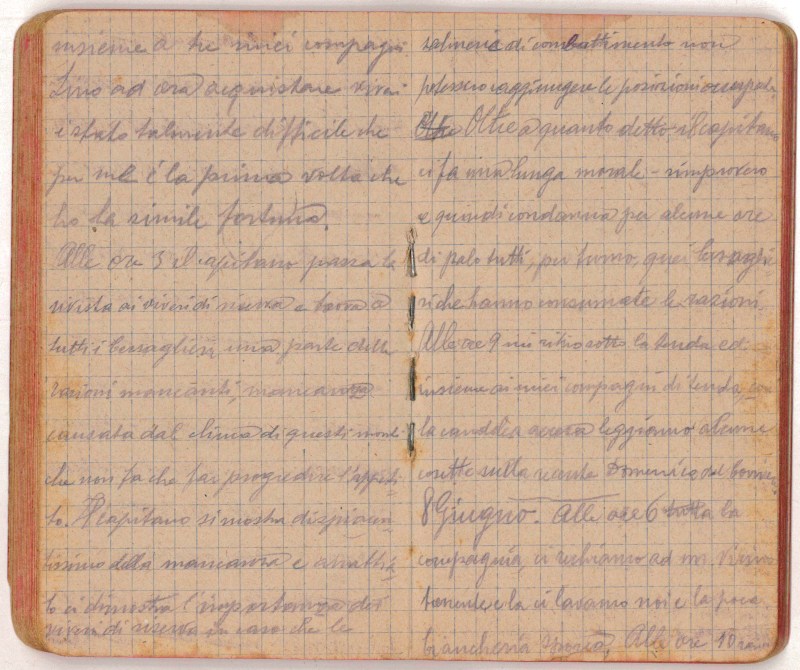 insieme a tre miei compagni.
Sino ad ora acquistare viveri
è stato talmente difficile che
per me è la prima volta che
ho la simile fortuna.
Alle ore 3 il capitano passa la
rivista ai viveri di riserva e trova a
tutti i bersaglieri una parte delle
razioni mancanti, mancanza
causata dal clima di questi monti
che non fa che far progredire l'appeti-
to. Il capitano si mostra dispiacen-
tissimo della mancanza e
ci dimostra l'importanza dei
viveri di riserva in caso che le
salmerie di combattimento non
potessero raggiungere le posizioni occupate.
Oltre a quanto detto, il capitano
ci fa una lunga morale - rimprovero
e quindi condanna per alcune ore
di palo tutti, per turno, quei bersaglie-
ri che hanno consumate le razioni.
Alle ore 9 mi ritiro sotto la tenda ed
insieme ai miei compagni di tenda, con
la candela accesa leggiamo alcune
cosette sulla Domenica del Corriere.
8 Giugno. Alle ore 6 tutta la
compagnia, ci rechiamo ad un
torrente e la ci laviamo noi e la poca
biancheria sporca. Alle ore 10